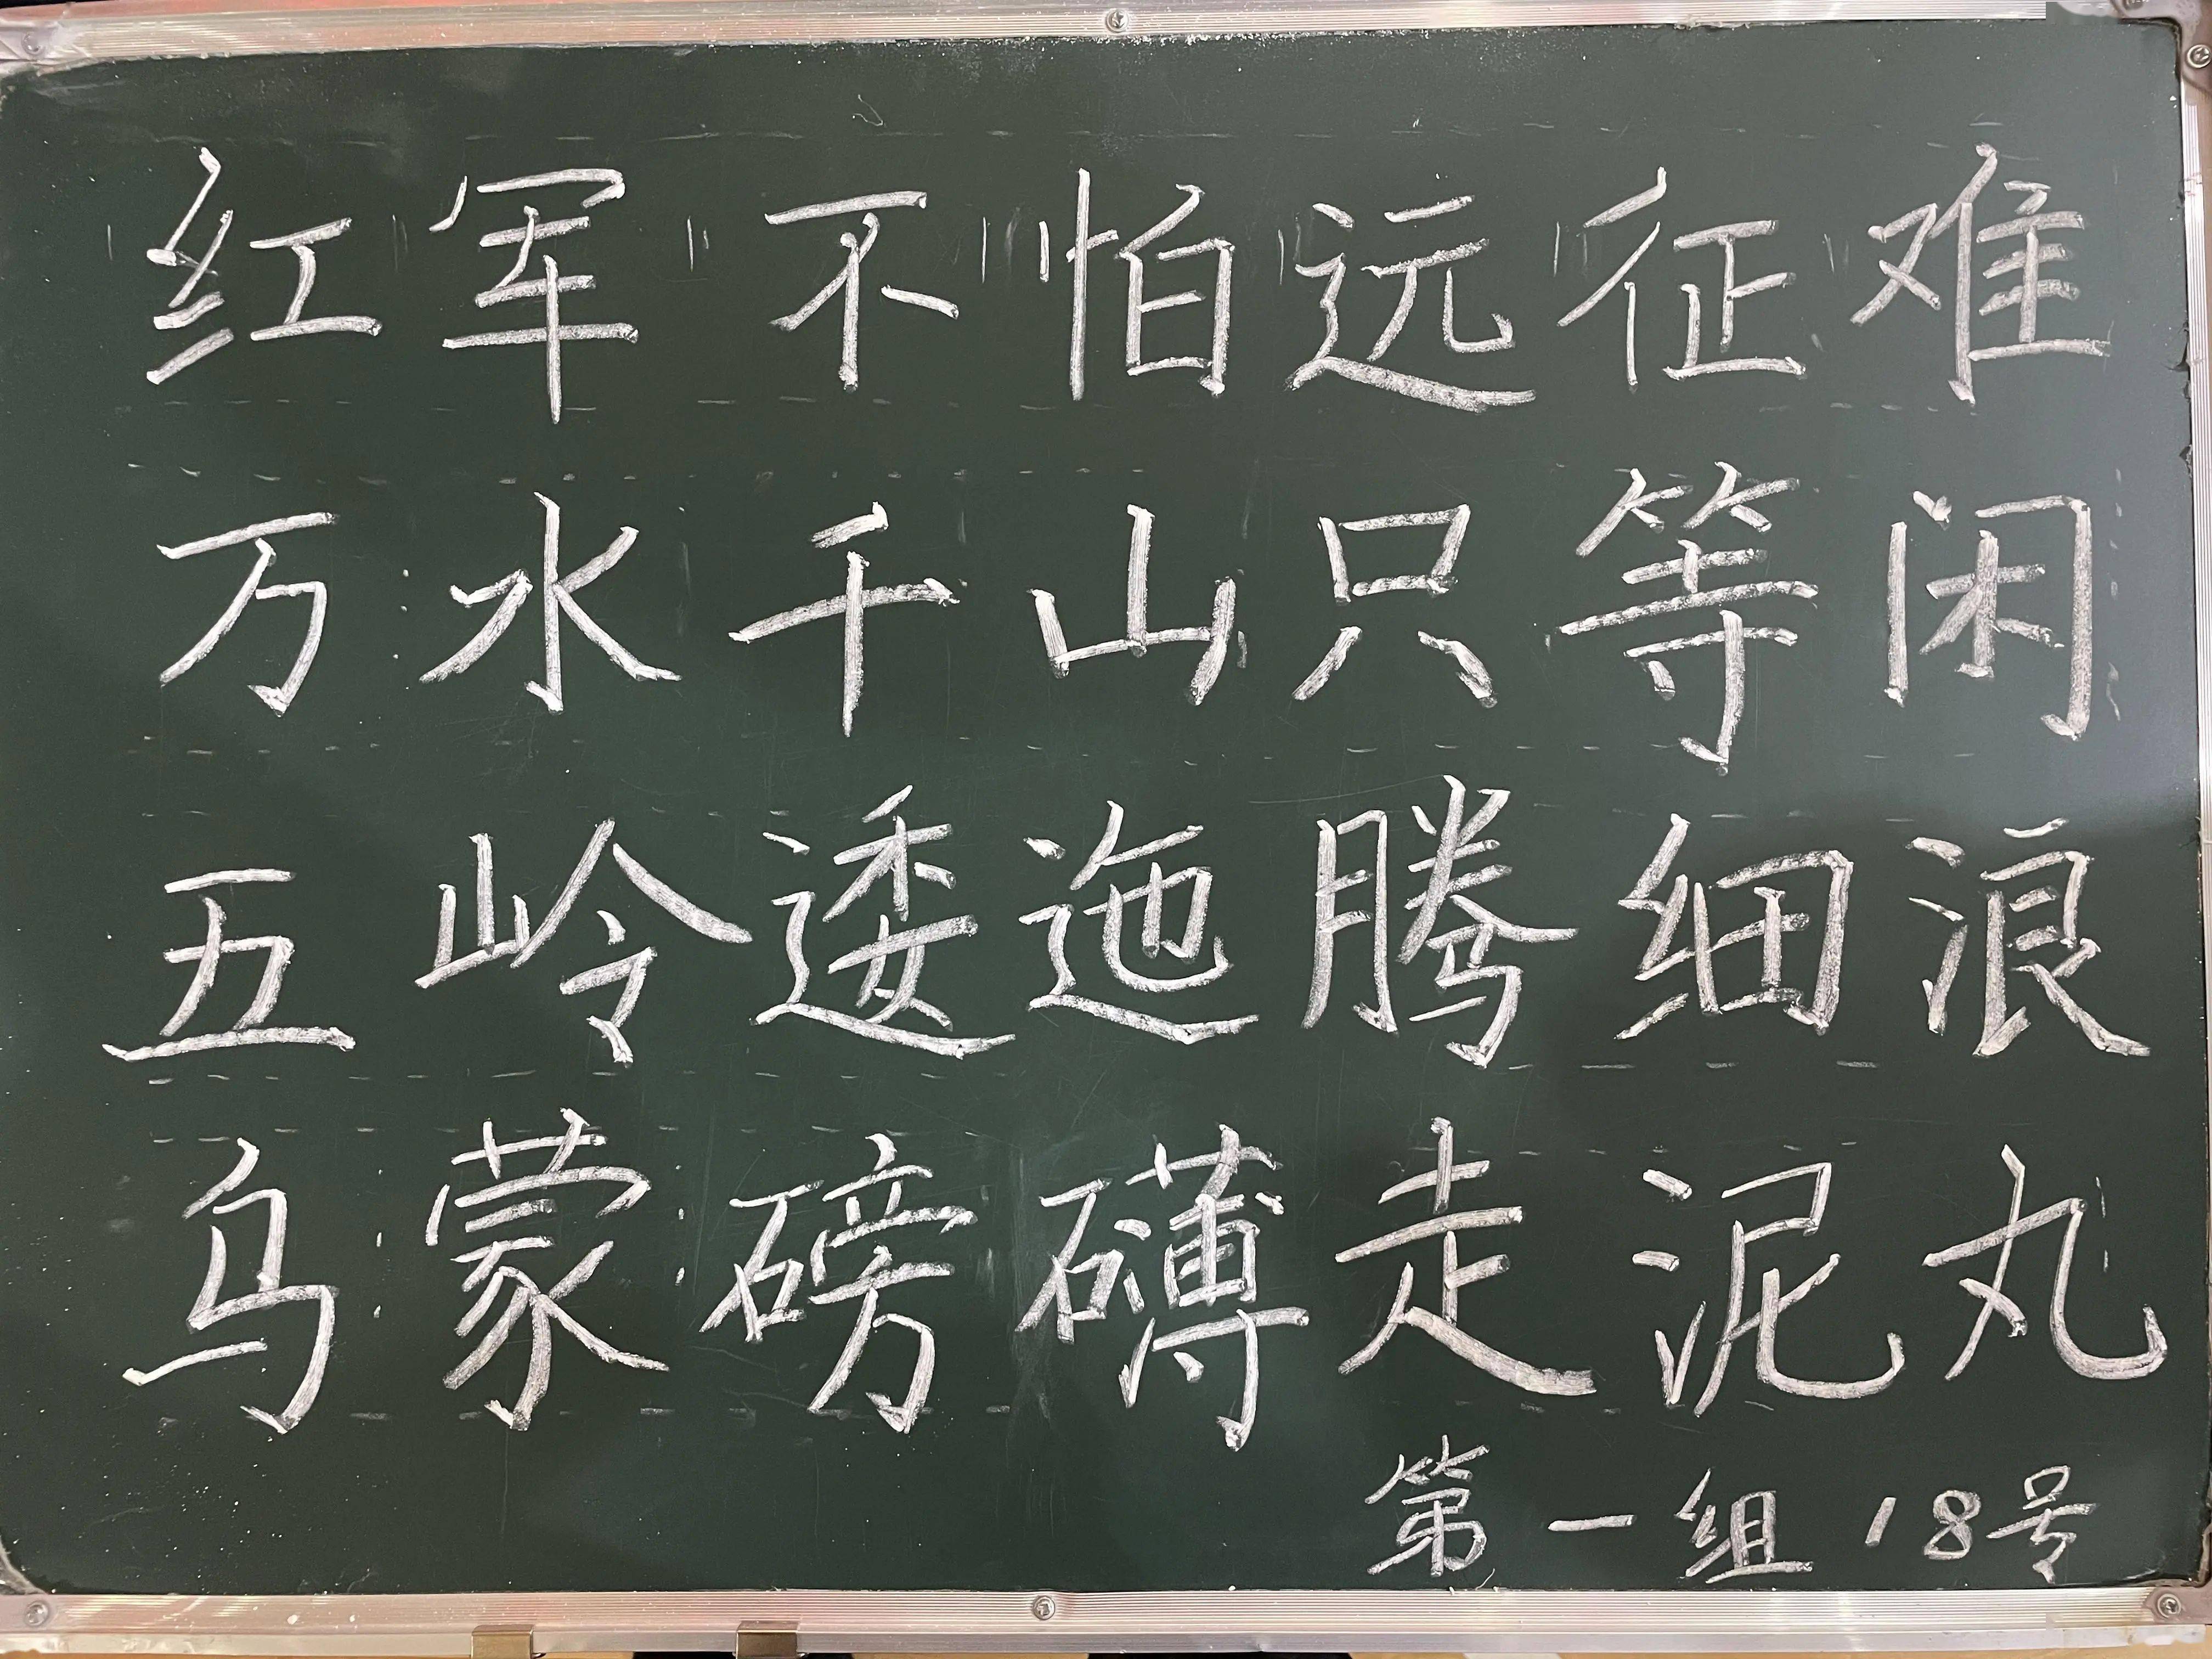 红军不怕远征难
万水千山只等闲
五岭逶迤腾细浪
乌蒙磅礴走泥丸
第一组18号